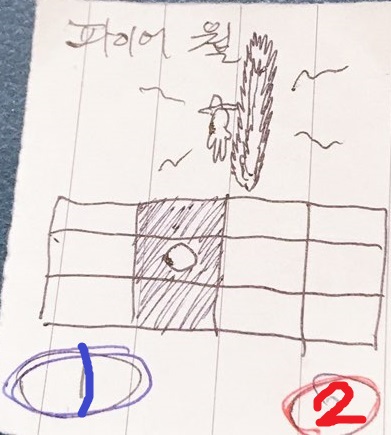 파이어 월
1 2